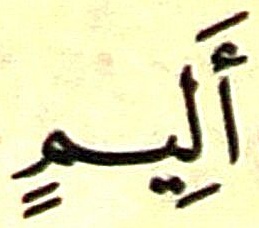 أَلِيمٍ